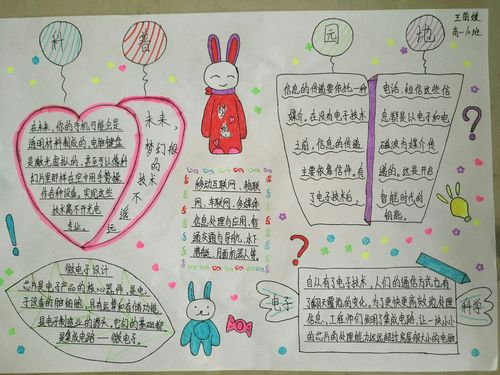 科
普
园
地
王丽媛
高一10班
在未来，你的手机可能会是
透明材料制成的，电脑键盘
是激光虚拟的，甚至可以像科
幻片里那样在空中用手势操
作各种设备。实现这些
技术离不开光电
专业。
未来，
梦幻般
的
技术
不
遥
远
信息的传递要依托一种
媒介，在没有电子技术
之前，信息的传递
主要依靠信件，有
了电子技术后
电话、短信这些信
息都是以电子和电
磁波为媒介传
递的。这是开启
智能时代的
钥匙。
移动互联网、物联
网、车联网、多媒体
信息处理与应用、智
能交通与导航、水下
潜艇、月面机器人等
微电子设计
芯片是电子产品的核心器件，是电
子设备的脑细胞，具有运算和存储功能，
是电子制造业的源头，它们的基础都
是集成电路——微电子。
电子
科学
自从有了电子技术，人们的通信方式也有
了翻天覆地的变化，为了更快更高效地处理
信息，工程师们发明了集成电路，让一块小小
的芯片的处理能力远远超过房屋般大小的电脑